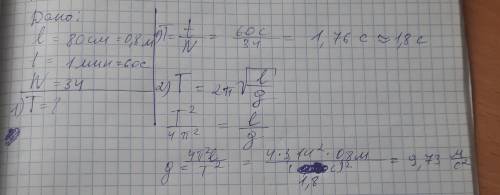 Дано:
l = 80см = 0,8м
t = 1мин = 60с
N = 34
1) T = ?
1) T = t/N = 60с/34 = 1,76 с ≈ 1,8 с
2) T = 2π√(l/g)
T²/4π² = l/g
g = 4π²l/T² = 4·3,14²·0,8м/(1,8 с)² = 9,73 м/с²